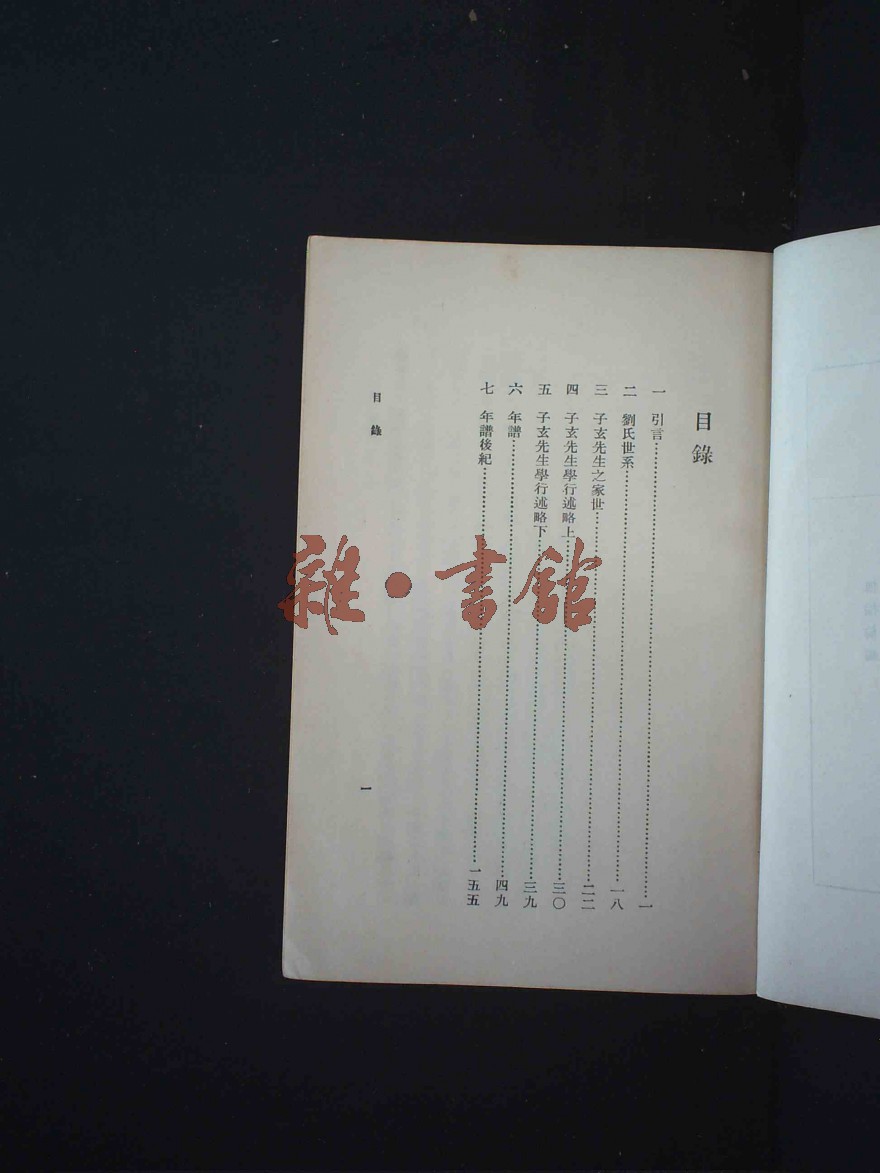 目錄
一 引言……一
二 劉氏世系……一八
三 子玄先生之家世……二二
四 子玄先生學行述略上……三〇
五 子玄先生學行述略下……三九
六 年譜……四九
七 年譜後紀……一五五
目錄
一
雜·書館